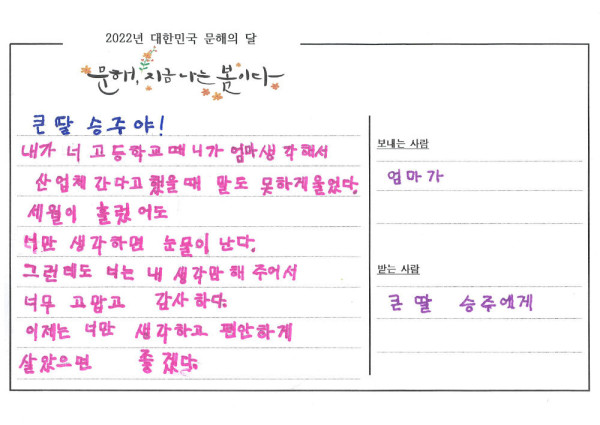 2022년 대한민국 문해의 달
문해, 지금 나는 봄이다
큰 딸 승주야!
내가 너 고등학교때 니가 엄마생각해서
산업체 간다고 했을때 말도 못하게울었다.
세월이 흘렀어도
너만 생각하면 눈물이 난다.
그런데도 너는 내 생각만 해 주어서
너무 고맙고 감사 하다.
이제는 너만 생각하고 편안하게
살았으면 좋겠다.
보내는 사람
엄마가
받는 사람
큰 딸 승주에게